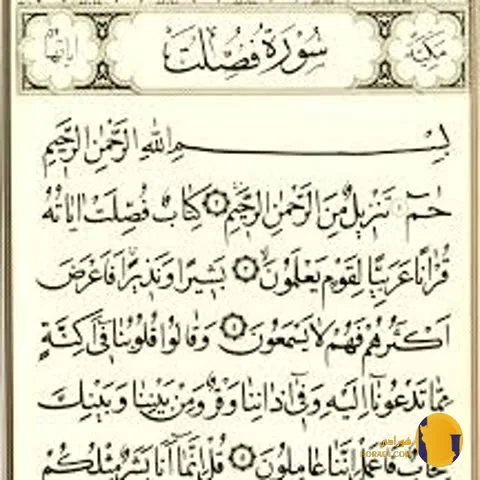 مكية سورة فصلت اياتها
بسم الله الرحمن الرحيم
حم تنزيل من الرحمن الرحيم كتاب فصلت اياته
قرانا عربيا لقوم يعلمون بشيرا ونذيرا فاعرض
اكثرهم فهم لا يسمعون وقالوا قلوبنا في اكنة
مما تدعونا اليه وفي اذاننا وقر ومن بيننا وبينك
حجاب فاعمل اننا عاملون قل انما انا بشر مثلكم